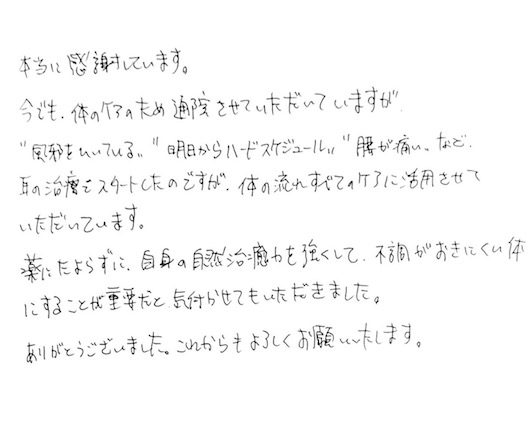 本当に感謝しています。
今でも、体のケアのため通院させていただいていますが
"風邪をひいている" "明日からハードスケジュール" "腰が痛い" など、
耳の治療でスタートしたのですが、体の流れすべてのケアに活用させて
いただいています。
薬にたよらずに、自身の自然治癒力を強くして、不調がおきにくい体
にすることが重要だと気付かせてもいただきました。
ありがとうございました。これからもよろしくお願いいたします。